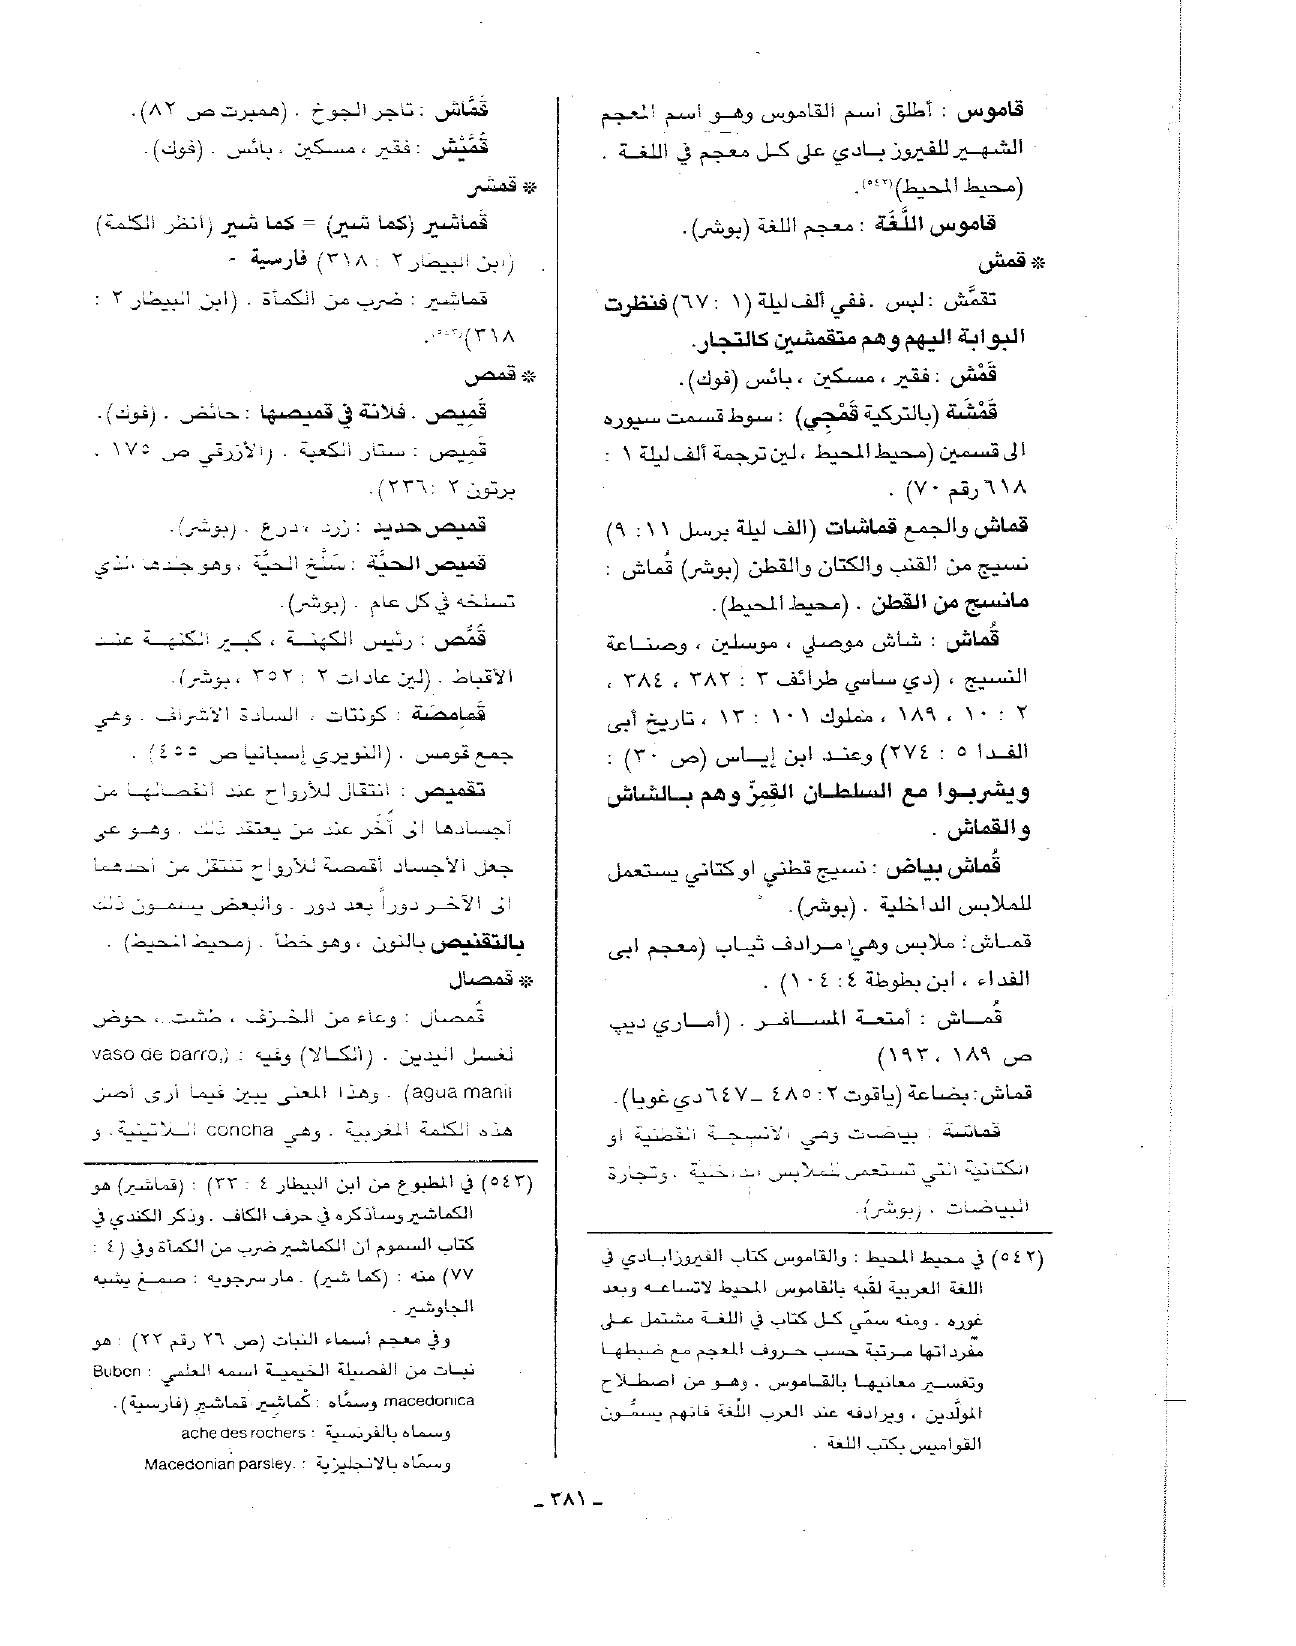 قاموس : أطلق أسم القاموس وهو أسم المعجم
الشهير للفيروز بادي على كل معجم في اللغة .
(محيط المحيط)(٥٤٢).
قاموس اللُّغَة : معجم اللغة (بوشر).
* قمش
تقمَّش : لبس . ففي ألف ليلة (١ : ٦٧) فنظرت
البوابة اليهم وهم متقمشين كالتجار.
قَمْش : فقير ، مسكين ، بائس (فوك).
قَمْشَة (بالتركية قَمْجي) : سوط قسمت سيوره
الى قسمين (محيط المحيط ، لين ترجمة ألف ليلة ١ :
٦١٨ رقم ٧٠) .
قماش والجمع قماشات (الف ليلة برسل ١١ : ٩)
نسيج من القنب والكتان والقطن (بوشر) قُماش :
مانسج من القطن . (محيط المحيط).
قُماش : شاش موصلي ، موسلين ، وصناعة
النسيج ، (دي ساسي طرائف ٢ : ٣٨٢ ، ٣٨٤ ،
٢ : ١٠ ، ١٨٩ ، مملوك ١٠١ : ١٣ ، تاريخ أبى
الفدا ٥ : ٢٧٤) وعند ابن إياس (ص ٣٠) :
ويشربوا مع السلطان القمز وهم بالشاش
والقماش .
قُماش بياض : نسيج قطني او كتاني يستعمل
للملابس الداخلية . (بوشر).
قماش : ملابس وهي مرادف ثياب (معجم ابى
الفداء ، ابن بطوطة ٤ : ١٠٤) .
قُماش : أمتعة المسافر . (أماري ديب
ص ١٨٩ ، ١٩٣)
قماش : بضاعة (ياقوت ٢ : ٤٨٥ ـ ٦٤٧ دي غويا).
قماشة : بياضات وهي الأنسجة القطنية أو
الكتانية التي تستعمل للملابس الداخلية . وتجارة
البياضات . (بوشر).
(٥٤٢) في محيط المحيط : والقاموس كتاب الفيروزابادي في
اللغة العربية لقبه بالقاموس المحيط لاتساعه وبعد
غوره . ومنه سمّي كل كتاب في اللغة مشتمل على
مفرداتها مرتبة حسب حروف المعجم مع ضبطها
وتفسير معانيها بالقاموس . وهو من اصطلاح
المولَّدين ، ويرادفه عند العرب اللُغة فانهم يسمُّون
القواميس بكتب اللغة .
قَمَّاش : تاجر الجوخ . (همبرت ص ٨٢).
قُمَّيْش : فقير ، مسكين ، بائس . (فوك).
* قمشر
قَماشير (كما شير) = كما شير (انظر الكلمة)
(ابن البيطار ٢ : ٣١٨) فارسية -
قماشير : ضرب من الكمأة . (ابن البيطار ٢ :
٣١٨)(٥٤٣).
* قمص
قَميص . فلانة في قميصها : حائض . (فوك).
قَميص : ستار الكعبة . (الأزرقي ص ١٧٥ .
برتون ٢ : ٢٣٦).
قميص حديد : زرد ، درع . (بوشر).
قميص الحيَّة : سَلْخ الحيَّة ، وهو جلدها الذي
تسلخه في كل عام . (بوشر).
قُمُّص : رئيس الكهنة ، كبير الكهنة عند
الأقباط . (لين عادات ٢ : ٣٥٢ ، بوشر).
قَمامصَة : كونتات ، السادة الأشراف . وهي
جمع قومس . (النويري إسبانيا ص ٤٥٥) .
تقميص : انتقال للأرواح عند انفصالها من
أجسادها الى أُخر عند من يعتقد ذلك . وهو على
جعل الأجساد أقمصة للأرواح تنتقل من أحدهما
الى الآخر دوراً بعد دور . والبعض يسمون ذلك
بالتقنيص بالنون ، وهو خطأ . (محيط المحيط) .
* قمصال
قُمصال : وعاء من الخزف ، طشت ، حوض
لغسل اليدين . (الكالا) وفيه : (vaso de barro,
agua manil) . وهذا المعنى يبين فيما أرى أصل
هذه الكلمة المغربية . وهي concha اللاتينية . و
(٥٤٣) في المطبوع من ابن البيطار ٤ : ٣٣) : (قماشير) هو
الكماشير وسأذكره في حرف الكاف . وذكر الكندي في
كتاب السموم ان الكماشير ضرب من الكمأة وفي (٤ :
٧٧) منه : (كما شير) . مار سرجويه : صمغ يشبه
الجاوشير .
وفي معجم أسماء النبات (ص ٣٦ رقم ٢٢) : هو
نبات من الفصيلة الخيمية اسمه العلمي : Bubon
macedonica وسمَّاه : كُماشير قماشير (فارسية).
وسماه بالفرنسية : ache des rochers
وسمَّاه بالانجليزية : Macedonian parsley.
ـ ٣٨١ ـ